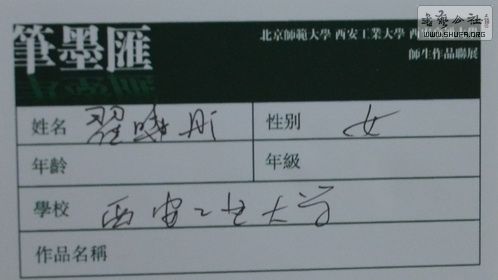 書藝公社
WWW.SHUFA.ORG
筆墨匯
北京師範大學 西安工業大學 西
師生作品聯展
姓名 翟曉彤 性别 女
年齡 年級
學校 西安工业大学
作品名稱